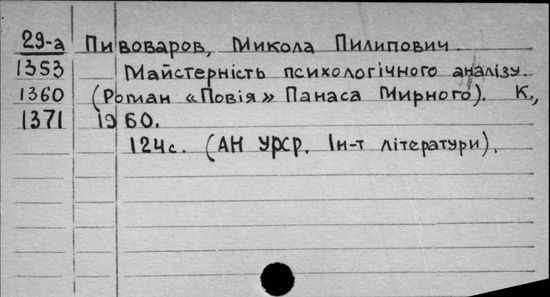 29-а Пивоваров, Микола Пилипович.
1353 Майстерність психологічного аналізу.
1360 (Роман «Повія» Панаса Мирного). К.,
1371 1960.
124с. (АН УРСР. Ін-т літератури).